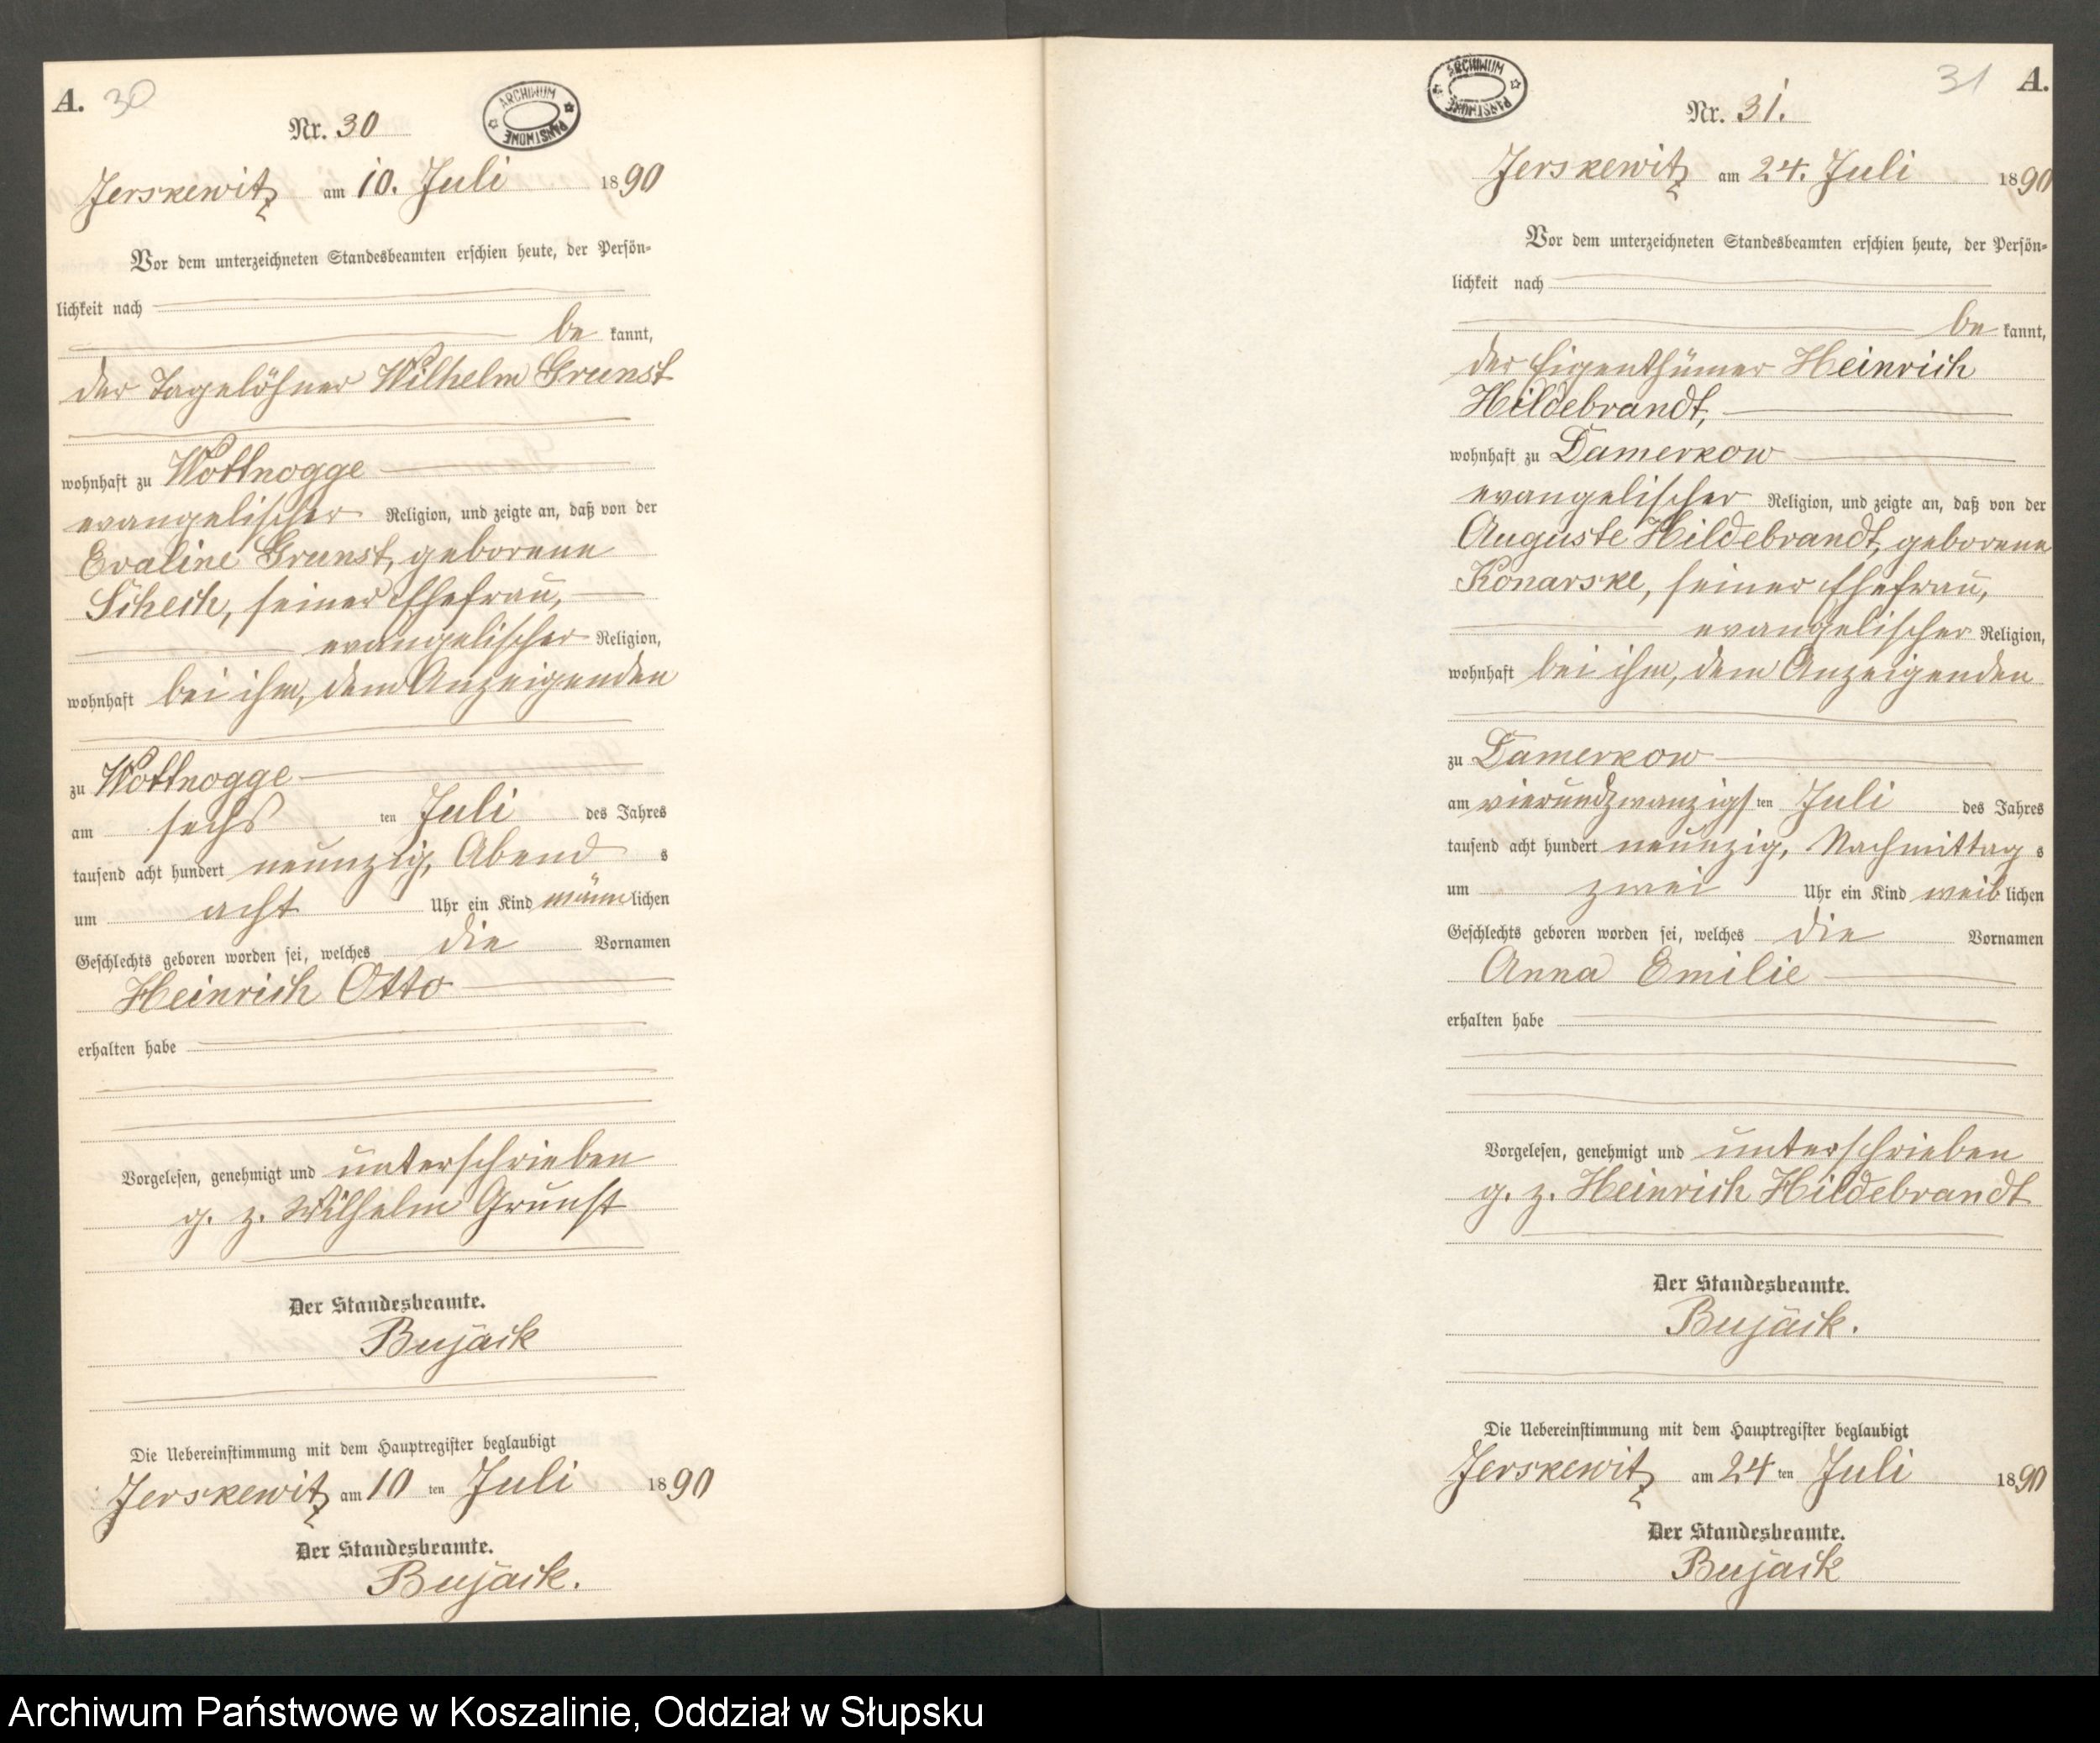 A. 30
ARCHIWUM PAŃSTWOWE
Nr. 30
Jerskewitz am 10. Juli 1890
Vor dem unterzeichneten Standesbeamten erschien heute, der Persön-
lichkeit nach
be kannt,
der Tagelöhner Wilhelm Grunst
wohnhaft zu Wottnogge
evangelischer Religion, und zeigte an, daß von der
Evaline Grunst, geborene
Schech, seiner Ehefrau,
evangelischer Religion,
wohnhaft bei ihm, dem Anzeigenden
zu Wottnogge
am sechs ten Juli des Jahres
tausend acht hundert neunzig, Abend s
um acht Uhr ein Kind männlichen
Geschlechts geboren worden sei, welches die Vornamen
Heinrich Otto
erhalten habe
Vorgelesen, genehmigt und unterschrieben
g. z. Wilhelm Grunst
Der Standesbeamte.
Bujack
Die Uebereinstimmung mit dem Hauptregister beglaubigt
Jerskewitz am 10 ten Juli 1890
Der Standesbeamte.
Bujack.
ARCHIWUM PAŃSTWOWE
31 A.
Nr. 31.
Jerskewitz am 24. Juli 1890
Vor dem unterzeichneten Standesbeamten erschien heute, der Persön-
lichkeit nach
be kannt,
der Eigenthümer Heinrich
Hildebrandt,
wohnhaft zu Damerkow
evangelischer Religion, und zeigte an, daß von der
Auguste Hildebrandt, geborene
Konarske, seiner Ehefrau,
evangelischer Religion,
wohnhaft bei ihm, dem Anzeigenden
zu Damerkow
am vierundzwanzigs ten Juli des Jahres
tausend acht hundert neunzig, Nachmittag s
um zwei Uhr ein Kind weib lichen
Geschlechts geboren worden sei, welches die Vornamen
Anna Emilie
erhalten habe
Vorgelesen, genehmigt und unterschrieben
g. z. Heinrich Hildebrandt
Der Standesbeamte.
Bujack.
Die Uebereinstimmung mit dem Hauptregister beglaubigt
Jerskewitz am 24 ten Juli 1890
Der Standesbeamte.
Bujack
Archiwum Państwowe w Koszalinie, Oddział w Słupsku